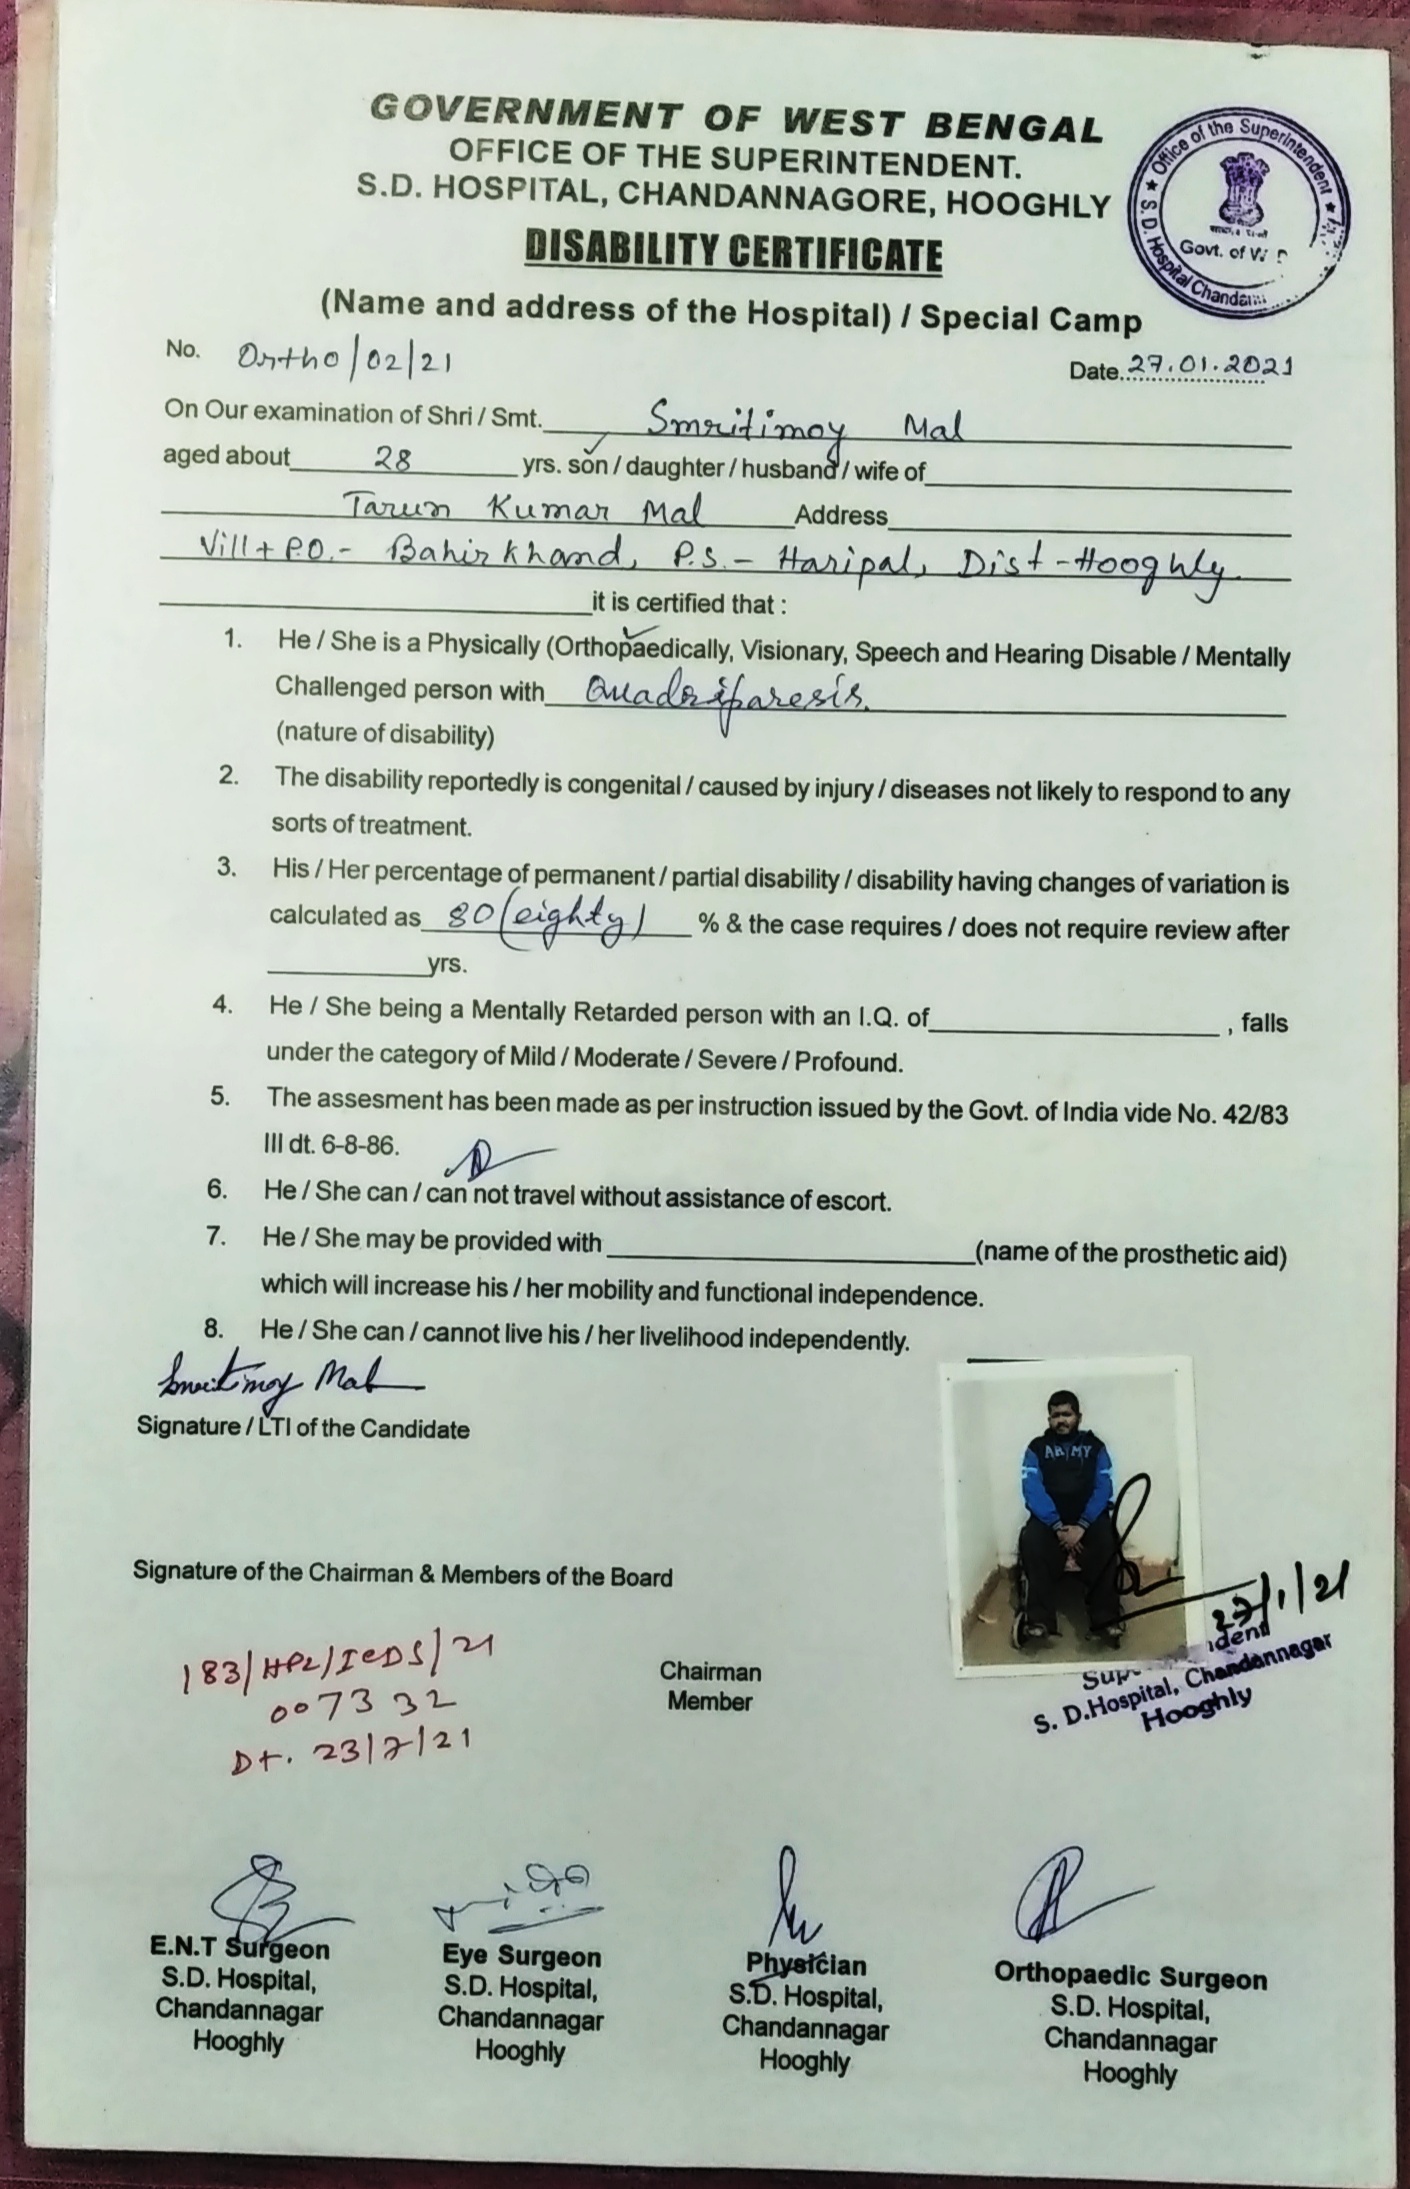 GOVERNMENT OF WEST BENGAL
OFFICE OF THE SUPERINTENDENT.
S.D. HOSPITAL, CHANDANNAGORE, HOOGHLY
Office of the Superintendent
S.D. Hospital
Govt. of
DISABILITY CERTIFICATE
(Name and address of the Hospital) / Special Camp
No. Ortho/02/21 Date. 27.01.2021
On Our examination of Shri / Smt. Smritimoy Mal
aged about 28 yrs. son / daughter / husband / wife of
Tarun Kumar Mal Address
Vill + P.O.- Bahirkhand, P.S.- Haripal, Dist-Hooghly.
it is certified that :
1. He / She is a Physically (Orthopaedically, Visionary, Speech and Hearing Disable / Mentally
Challenged person with Quadriparesis.
(nature of disability)
2. The disability reportedly is congenital / caused by injury / diseases not likely to respond to any
sorts of treatment.
3. His / Her percentage of permanent / partial disability / disability having changes of variation is
calculated as 80 (eighty) % & the case requires / does not require review after
yrs.
4. He / She being a Mentally Retarded person with an I.Q. of , falls
under the category of Mild / Moderate / Severe / Profound.
5. The assesment has been made as per instruction issued by the Govt. of India vide No. 42/83
III dt. 6-8-86.
6. He / She can / can not travel without assistance of escort.
7. He / She may be provided with (name of the prosthetic aid)
which will increase his / her mobility and functional independence.
8. He / She can / cannot live his / her livelihood independently.
Smritimoy Mal
Signature / LTI of the Candidate
ARMY
Signature of the Chairman & Members of the Board
27/1/21
183/HPL/ICDS/21
007332
Dt. 23/7/21
Chairman
Member
S. D.Hospital, Chandannagar
Hooghly
E.N.T Surgeon
S.D. Hospital,
Chandannagar
Hooghly
Eye Surgeon
S.D. Hospital,
Chandannagar
Hooghly
Physician
S.D. Hospital,
Chandannagar
Hooghly
Orthopaedic Surgeon
S.D. Hospital,
Chandannagar
Hooghly